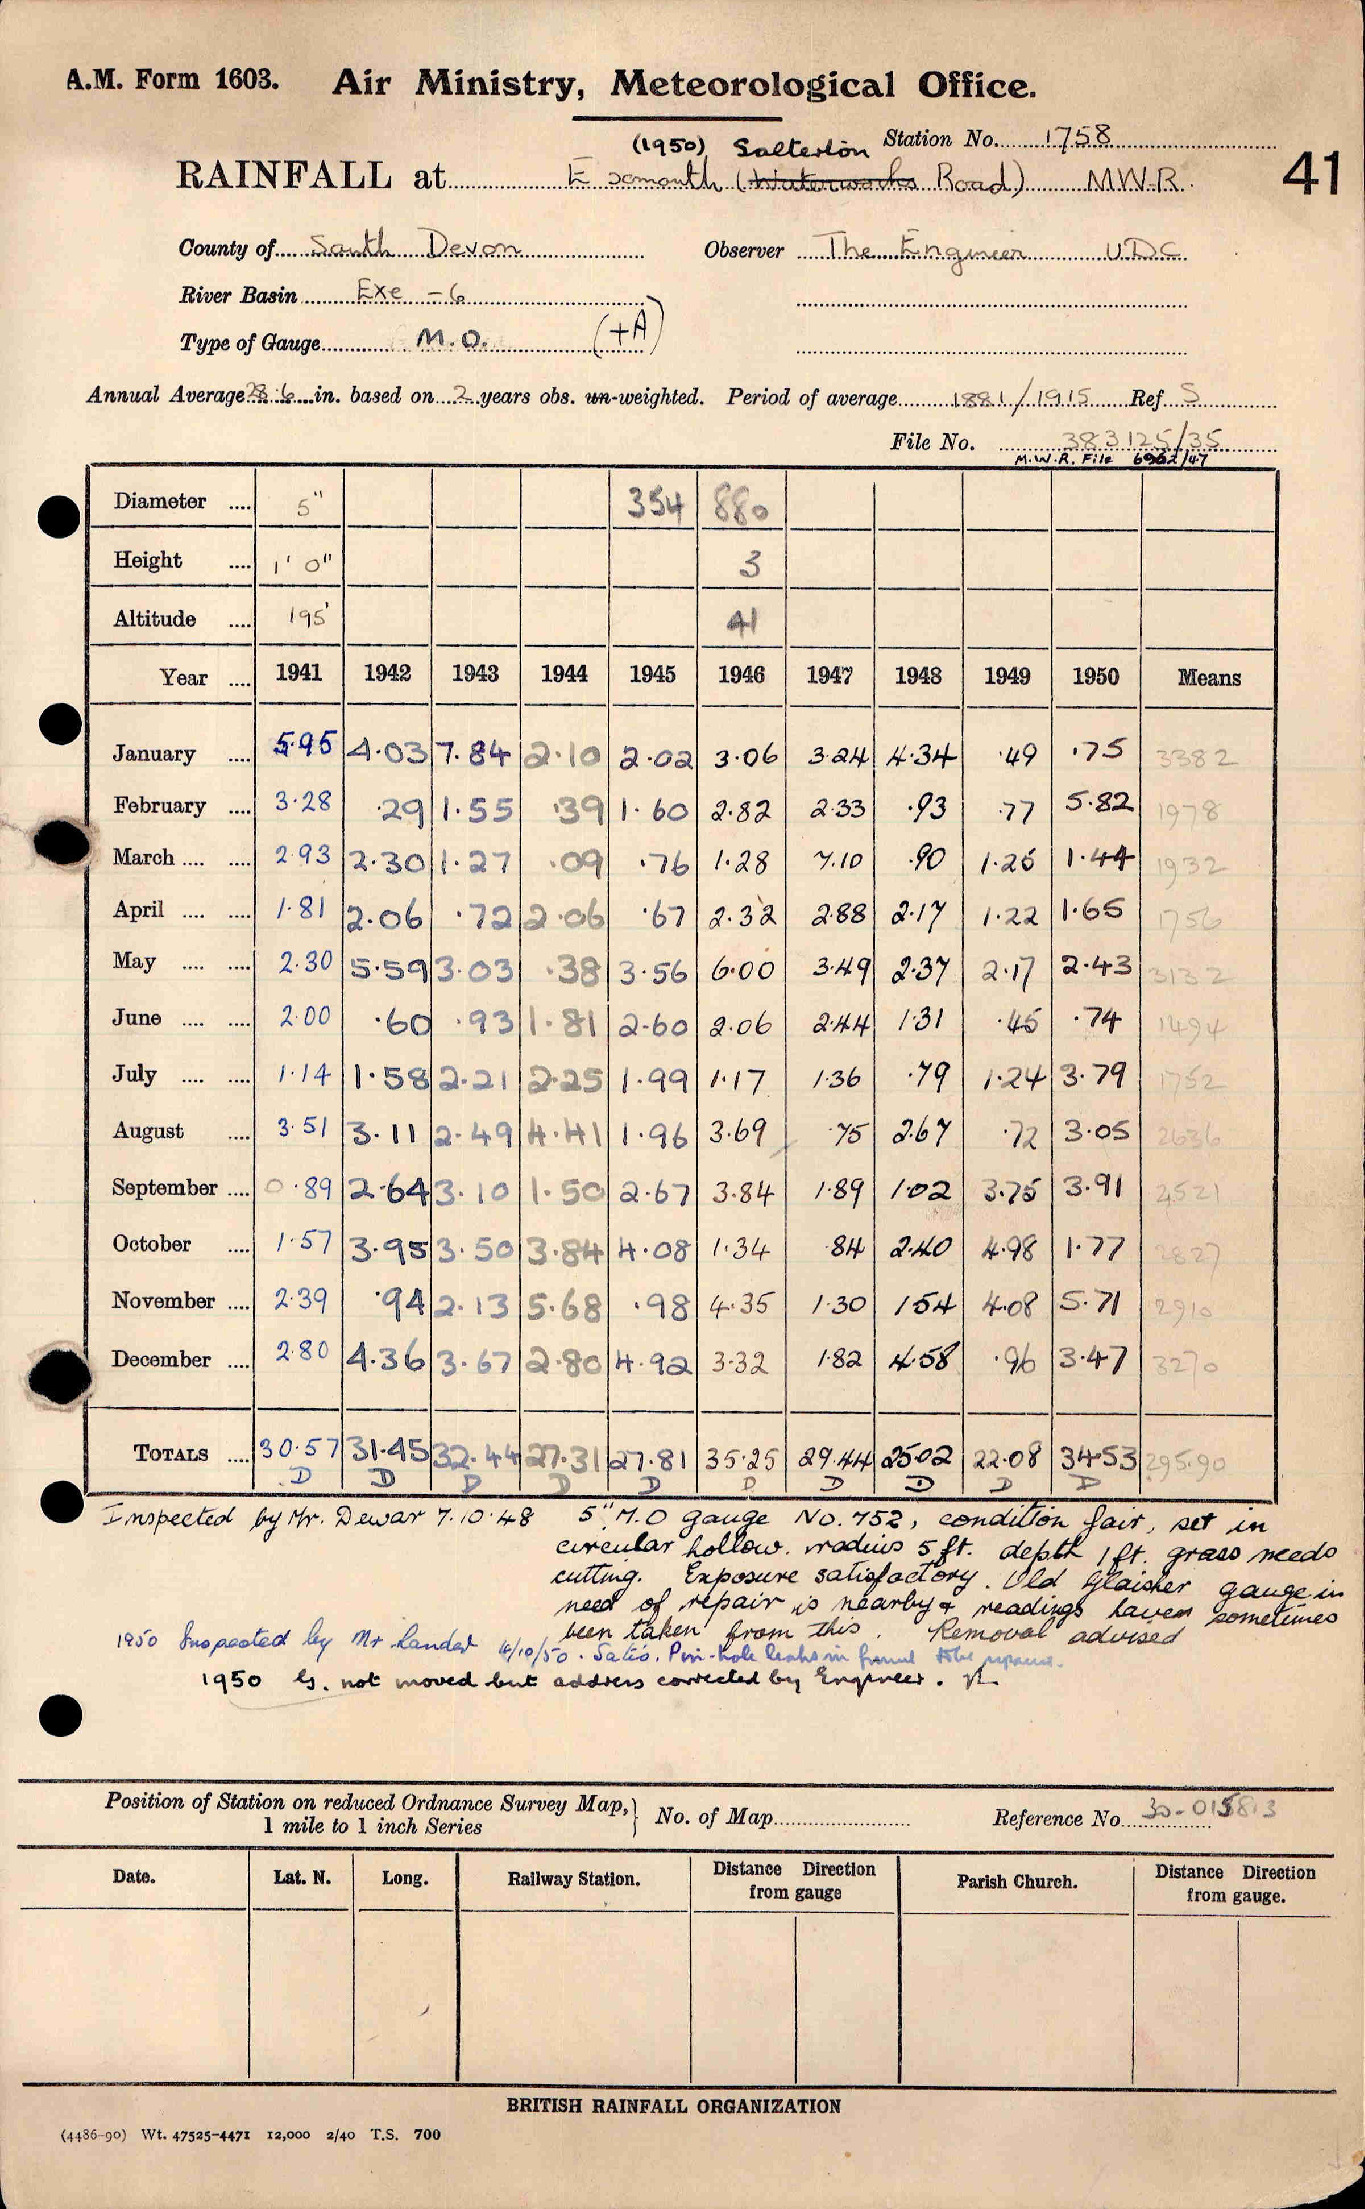 A.M. Form 1603. Air Ministry, Meteorological Office.
(1950) Salterton Station No. 1758
RAINFALL at Exmouth (Waterworks Road) MWR. 41
County of South Devon Observer The Engineer UDC.
River Basin Exe - 6
Type of Gauge M.O. (+A)
Annual Average 28.6 in. based on 2 years obs. un-weighted. Period of average 1881/1915 Ref. S
File No. 383125/35
M.W.R. File 6962/47
Diameter .... 5" 354 880
Height .... 1' 0" 3
Altitude .... 195' 41
Year .... 1941 1942 1943 1944 1945 1946 1947 1948 1949 1950 Means
January .... 5.95 4.03 7.84 2.10 2.02 3.06 3.24 4.34 .49 .75 3382
February .... 3.28 .29 1.55 .39 1.60 2.82 2.33 .93 .77 5.82 1978
March .... .... 2.93 2.30 1.27 .09 .76 1.28 7.10 .90 1.25 1.44 1932
April .... .... 1.81 2.06 .72 2.06 .67 2.32 2.88 2.17 1.22 1.65 1756
May .... .... 2.30 5.59 3.03 .38 3.56 6.00 3.49 2.37 2.17 2.43 3132
June .... .... 2.00 .60 .93 1.81 2.60 2.06 2.44 1.31 .45 .74 1494
July .... .... 1.14 1.58 2.21 2.25 1.99 1.17 1.36 .79 1.24 3.79 1752
August .... 3.51 3.11 2.49 4.41 1.96 3.69 .75 2.67 .72 3.05 2636
September .... 0.89 2.64 3.10 1.50 2.67 3.84 1.89 1.02 3.75 3.91 2521
October .... 1.57 3.95 3.50 3.84 4.08 1.34 .84 2.40 4.98 1.77 2827
November .... 2.39 .94 2.13 5.68 .98 4.35 1.30 1.54 4.08 5.71 2910
December .... 2.80 4.36 3.67 2.80 4.92 3.32 1.82 4.58 .96 3.47 3270
TOTALS .... 30.57 31.45 32.44 27.31 27.81 35.25 29.44 25.02 22.08 34.53 295.90
D D D D D D D D D D
Inspected by Mr. Dewar 7.10.48 5" M.O gauge No. 752, condition fair, set in
circular hollow. radius 5 ft. depth 1 ft. grass needs
cutting. Exposure satisfactory. Old Glaisher gauge in
need of repair is nearby & readings have sometimes
been taken from this. Removal advised
1950 Inspected by Mr 4/10/50. Satis. Pin-hole leaks in funnel to be
1950 G. not moved but address corrected by Engineer.
Position of Station on reduced Ordnance Survey Map,} No. of Map Reference No. 30-015813
1 mile to 1 inch Series
Date. Lat. N. Long. Railway Station. Distance Direction from gauge Parish Church. Distance Direction from gauge.
BRITISH RAINFALL ORGANIZATION
(4486-90) Wt. 47525-4471 12,000 2/40 T.S. 700